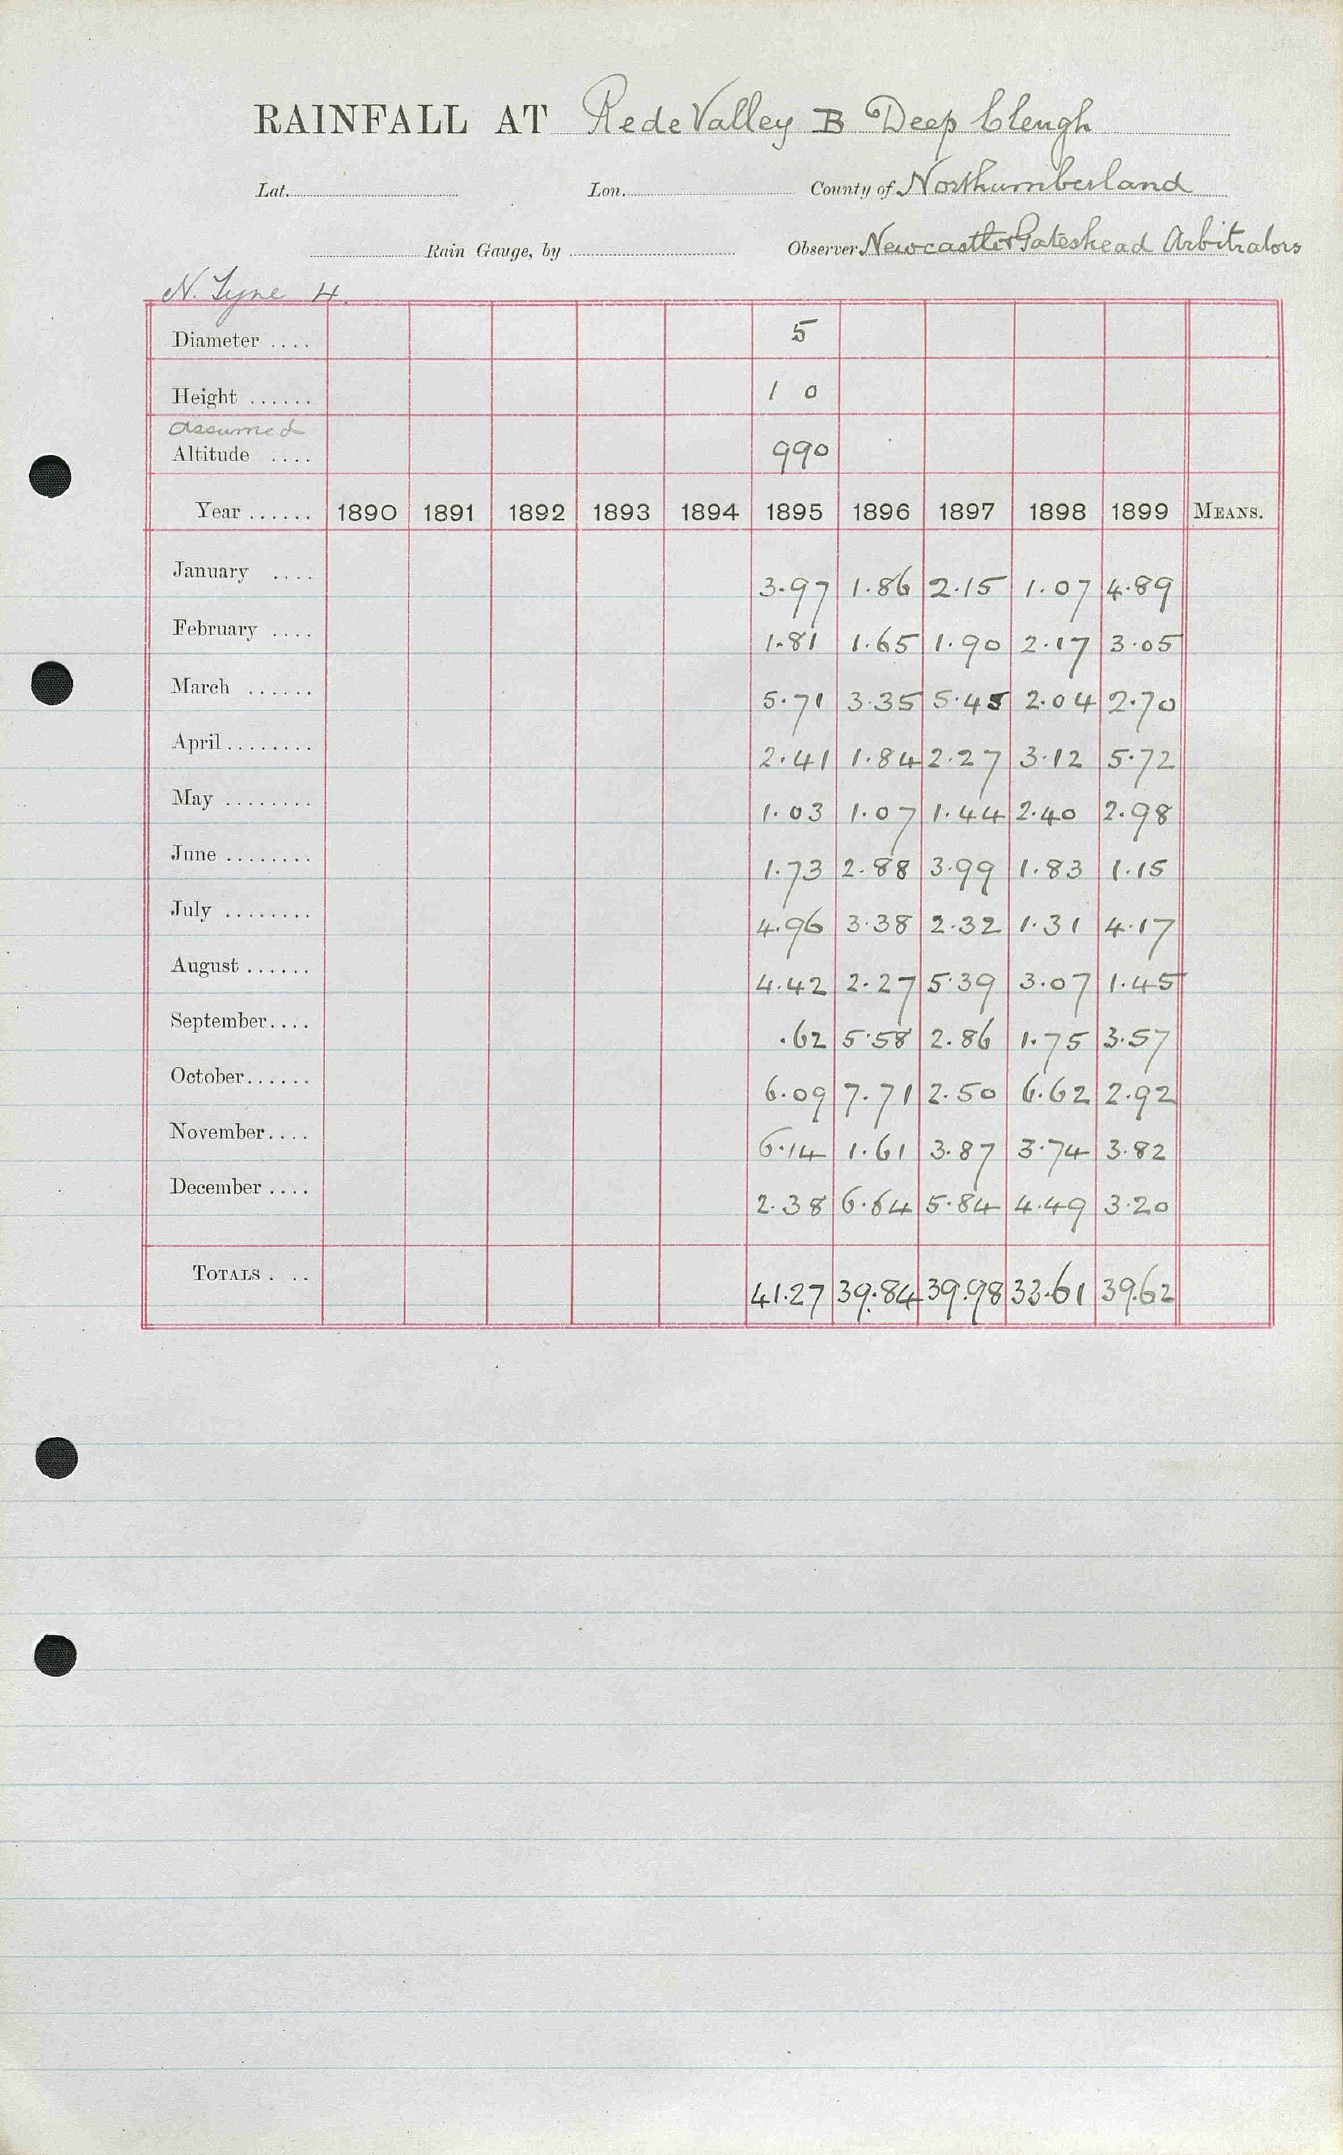 RAINFALL AT Rede Valley B Deep Cleugh
Lat. Lon. County of Northumberland
Rain Gauge, by Observer Newcastle & Gateshead Arbitrators
N. Tyne 4.
Diameter .... 5
Height ...... 1 0
assumed
Altitude .... 990
Year ...... 1890 1891 1892 1893 1894 1895 1896 1897 1898 1899 MEANS.
January .... 3.97 1.86 2.15 1.07 4.89
February .... 1.81 1.65 1.90 2.17 3.05
March ...... 5.71 3.35 5.45 2.04 2.70
April ........ 2.41 1.84 2.27 3.12 5.72
May ........ 1.03 1.07 1.44 2.40 2.98
June ........ 1.73 2.88 3.99 1.83 1.15
July ........ 4.96 3.38 2.32 1.31 4.17
August ...... 4.42 2.27 5.39 3.07 1.45
September.... .62 5.58 2.86 1.75 3.57
October...... 6.09 7.71 2.50 6.62 2.92
November.... 6.14 1.61 3.87 3.74 3.82
December .... 2.38 6.64 5.84 4.49 3.20
TOTALS . .. 41.27 39.84 39.98 33.61 39.62